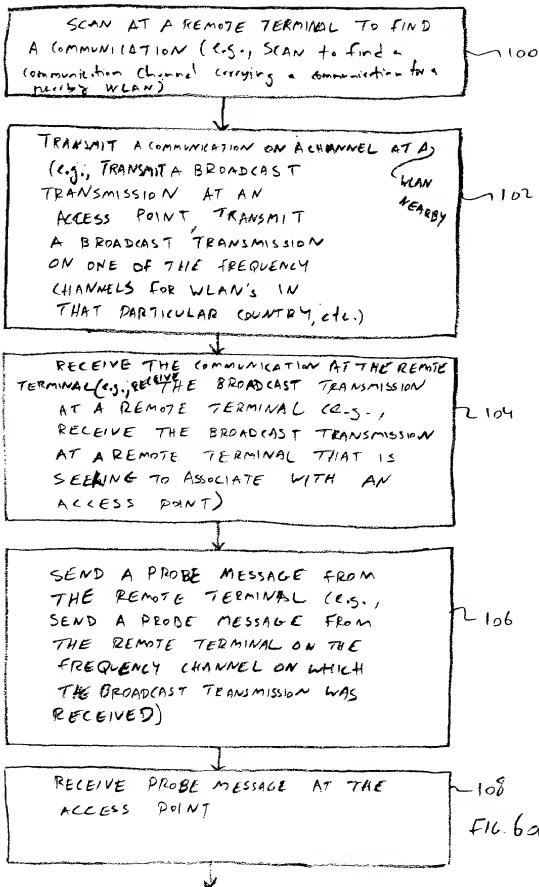 SCAN AT A REMOTE TERMINAL TO FIND
A COMMUNICATION (e.g., SCAN to find a
communication channel carrying a communication for a
nearby WLAN)
100
TRANSMIT A COMMUNICATION ON A CHANNEL AT A
WLAN
NEARBY
(e.g., TRANSMIT A BROADCAST
TRANSMISSION AT AN
ACCESS POINT, TRANSMIT
A BROADCAST TRANSMISSION
ON ONE OF THE FREQUENCY
CHANNELS FOR WLAN'S IN
THAT PARTICULAR COUNTRY, etc.)
102
RECEIVE THE COMMUNICATION AT THE REMOTE
TERMINAL (e.g., RECEIVE THE BROADCAST TRANSMISSION
AT A REMOTE TERMINAL (e.g.,
RECEIVE THE BROADCAST TRANSMISSION
AT A REMOTE TERMINAL THAT IS
SEEKING TO ASSOCIATE WITH AN
ACCESS POINT)
104
SEND A PROBE MESSAGE FROM
THE REMOTE TERMINAL (e.g.,
SEND A PROBE MESSAGE FROM
THE REMOTE TERMINAL ON THE
FREQUENCY CHANNEL ON WHICH
THE BROADCAST TRANSMISSION WAS
RECEIVED)
106
RECEIVE PROBE MESSAGE AT THE
ACCESS POINT
108
FIG. 6a